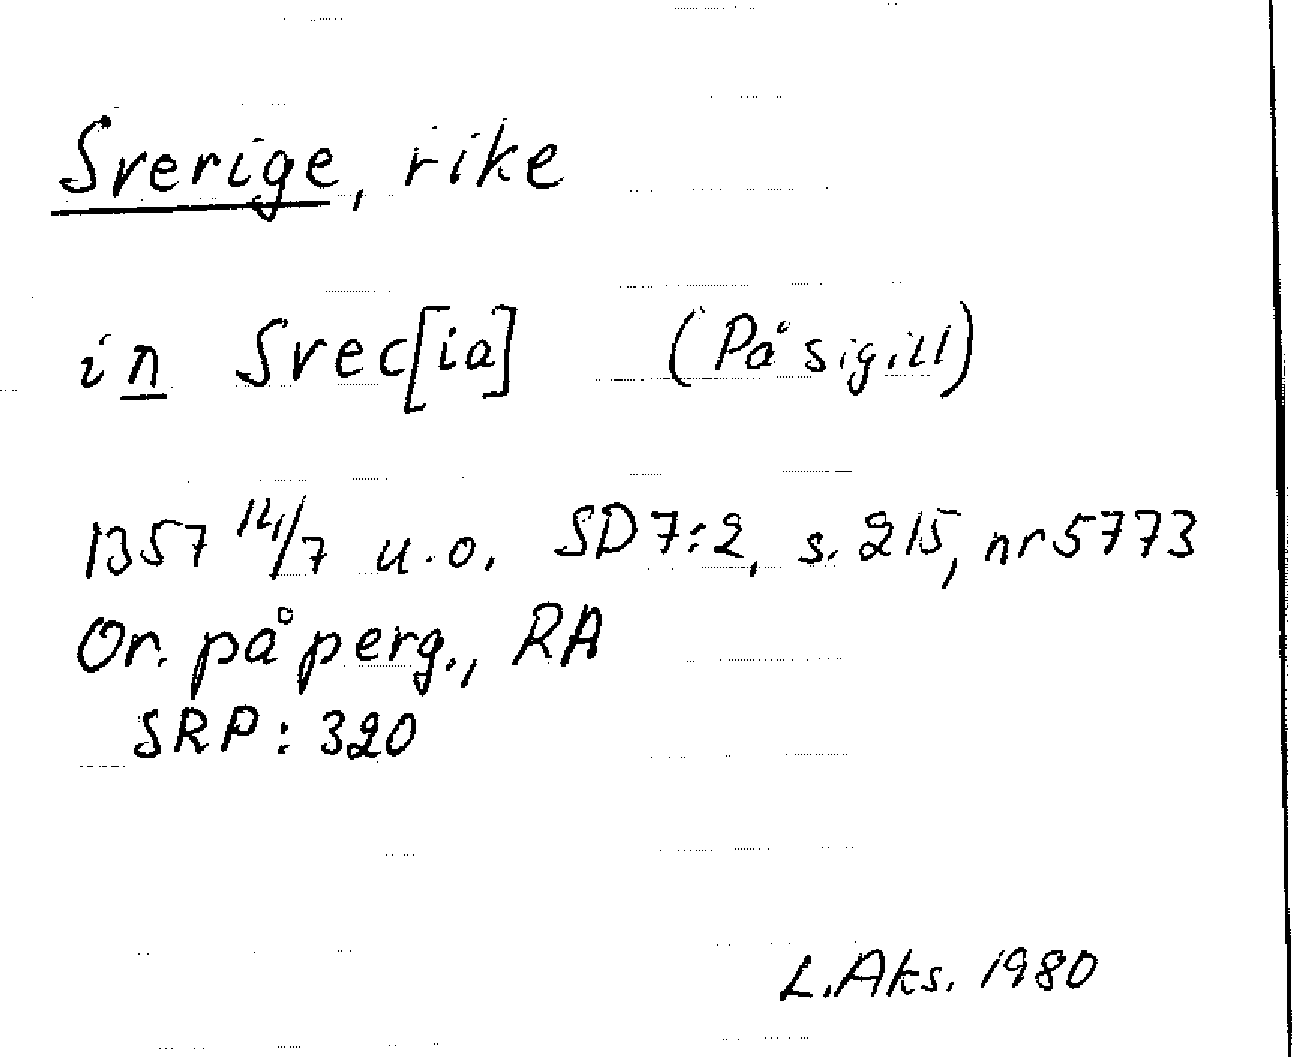 Sverige, rike
in Svec[ia] (På sigill)
1357 14/7 u.o. SD 7:2, s. 215, nr 5773
Or. på perg., RA
SRP: 320
L.Aks. 1980